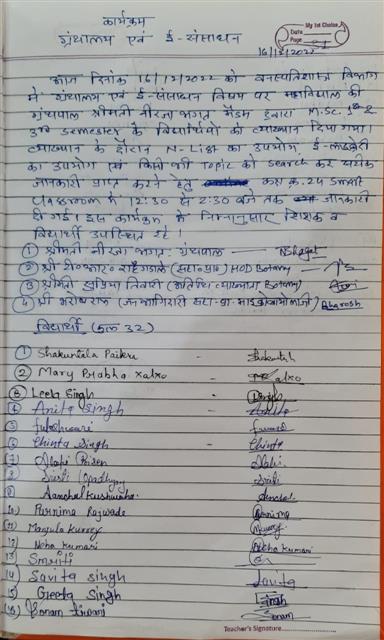 My 1st Choice
Date
Page 21
16/12/2022
कार्यक्रम
ग्रंथालय एवं ई-संसाधन
आज दिनांक 16/12/2022 को वनस्पतिशास्त्र विभाग
में ग्रंथालय एवं ई-संसाधन विषय पर महाविद्यालय की
ग्रंथपाल श्रीमती नीरजा भगत मैडम द्वारा M.Sc. 1st &
3rd semester के विद्यार्थियों को व्याख्यान दिया गया।
व्याख्यान के दौरान N-List का उपयोग, ई-लाइब्रेरी
का उपयोग एवं किसी भी Topic को search कर
जानकारी प्राप्त करने हेतु कक्ष क्र. 24 Smart
Classroom में 12:30 से 2:30 बजे तक जानकारी
दी गई। इस कार्यक्रम के निम्नानुसार शिक्षक व
विद्यार्थी उपस्थित रहे।
① श्रीमती नीरजा भगत- ग्रंथपाल — Bhagat
② श्री (सहा० प्रा०) HOD Botany —
③ श्रीमती सुप्रिया तिवारी (अतिथि व्याख्याता Botany)
④ श्री (जनभागीदारी सहा. प्रा. माइक्रोबायोलाजी) Bharosh
विद्यार्थी (कुल 32)
① Shakuntala Paikra - Shakuntala
② Mary Prabha xalxo - xalxo
③ Leela Singh
4 Anita Singh - Anita
5 Fuleshwari
6 Chinta Singh - Chinta
7
8 Sristi Upadhyay Sristi
9 Aanchal Kushwaha Aanchal
10 Purnima Rajwade Purnima
11 Manjula kurrey Kurrey
12 Neha Kumari Neha Kumari
13 Smriti
14 Savita Singh Savita
15 Geeta Singh Singh
16 Sonam tiwari Sonam
Teacher's Signature